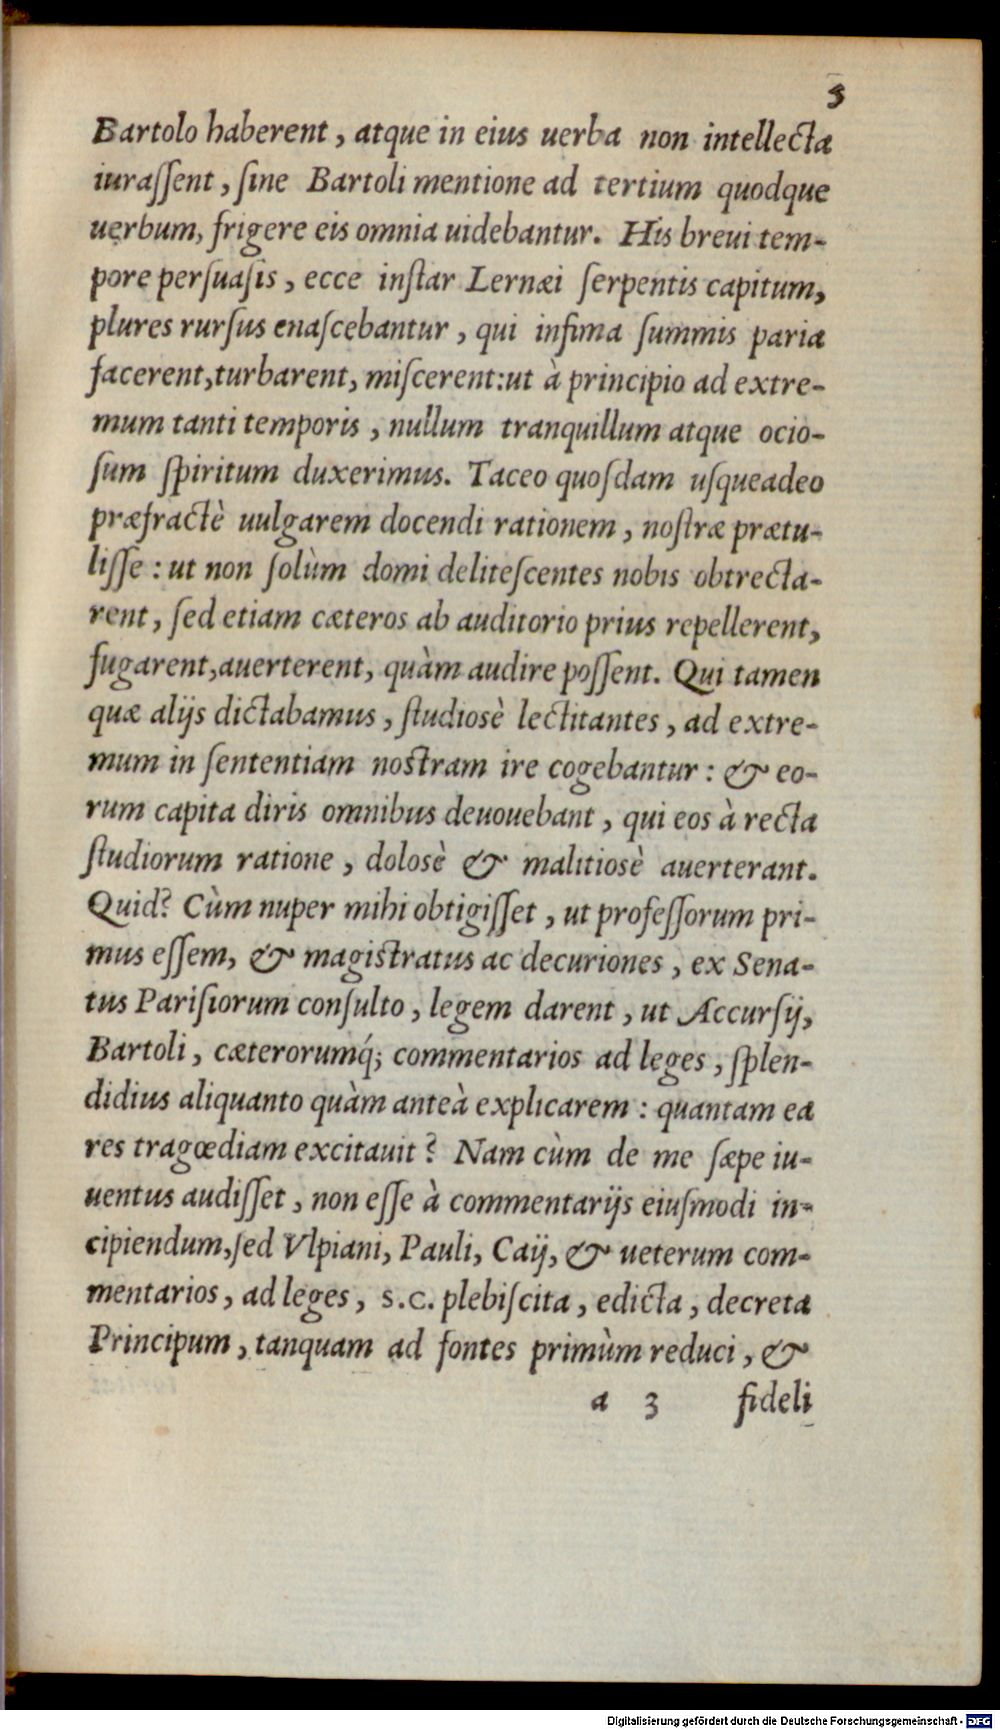 5
Bartolo haberent, atque in eius uerba non intellecta
iuraſſent, ſine Bartoli mentione ad tertium quodque
uerbum, frigere eis omnia uidebantur. His breui tem-
pore perſuaſis, ecce inſtar Lernæi ſerpentis capitum,
plures rurſus enaſcebantur, qui infima ſummis paria
facerent, turbarent, miſcerent: ut à principio ad extre-
mum tanti temporis, nullum tranquillum atque ocio-
ſum ſpiritum duxerimus. Taceo quoſdam uſqueadeo
præfractè uulgarem docendi rationem, noſtræ prætu-
liſſe: ut non ſolùm domi deliteſcentes nobis obtrecta-
rent, ſed etiam cæteros ab auditorio prius repellerent,
fugarent, auerterent, quàm audire poſſent. Qui tamen
quæ alijs dictabamus, ſtudiosè lectitantes, ad extre-
mum in ſententiam nostram ire cogebantur: & eo-
rum capita diris omnibus deuouebant, qui eos à recta
ſtudiorum ratione, dolosè & malitiosè auerterant.
Quid? Cùm nuper mihi obtigiſſet, ut profeſſorum pri-
mus eſſem, & magistratus ac decuriones, ex Sena-
tus Pariſiorum conſulto, legem darent, ut Accurſij,
Bartoli, cæterorumq́; commentarios ad leges, ſplen-
didius aliquanto quàm anteà explicarem: quantam ea
res tragœdiam excitauit? Nam cùm de me ſæpe iu-
uentus audiſſet, non eſſe à commentarijs eiuſmodi in-
cipiendum, ſed Vlpiani, Pauli, Caij, & ueterum com-
mentarios, ad leges, S.C. plebiſcita, edicta, decreta
Principum, tanquam ad fontes primùm reduci, &
a 3 fideli
Digitalisierung gefördert durch die Deutsche Forschungsgemeinschaft - DFG